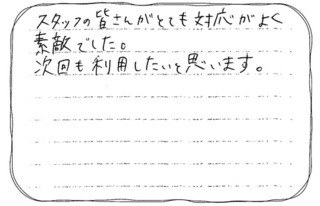 スタッフの皆さんがとても対応がよく
素敵でした。
次回も利用したいと思います。